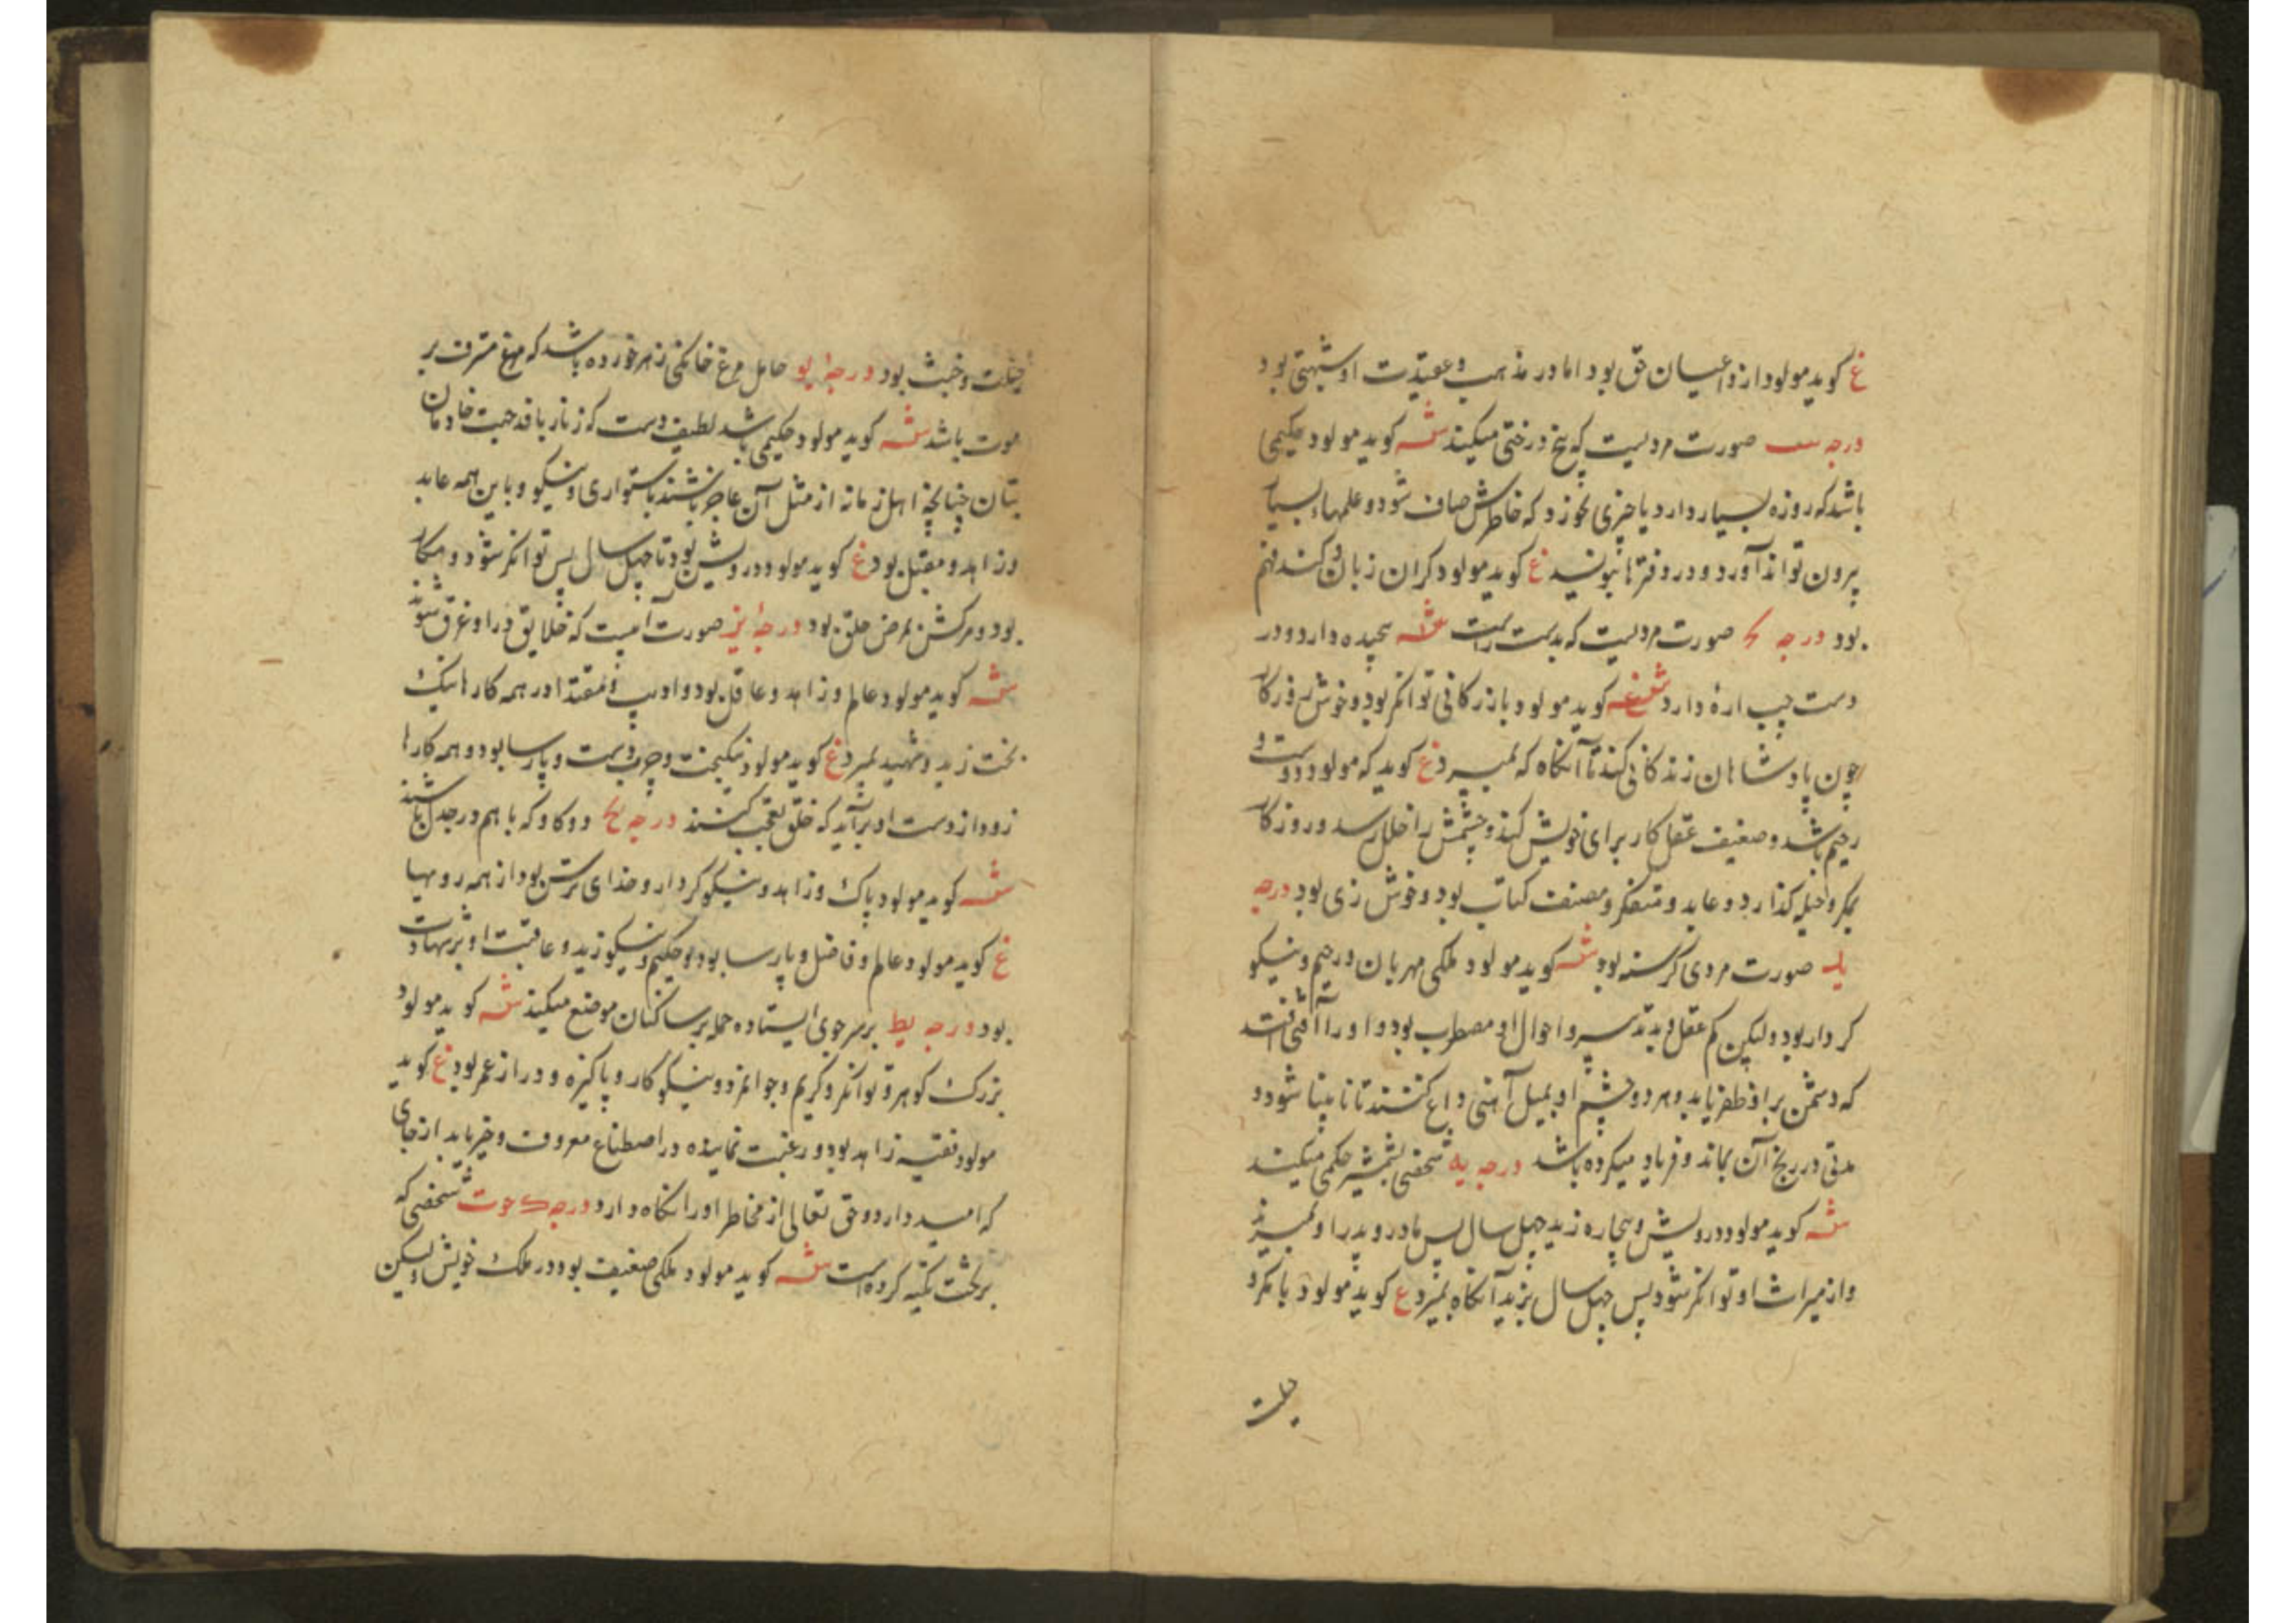 غ کوید مولود از داعیان حق بود اما در مذهب و عقیدت او شبهتی بود
درجه صورت مردیست که بیخ درختی میکند شه کوید مولود حکیمی
باشد که روزه بسیار دارد یا چیزی نخورد که خاطرش صاف شود و علمهاء بسیار
بیرون تواند آورد و در دفترها بنویسد غ کوید مولود کران زبان و کند فهم
بود درجه صورت مردیست که بدست راست شه پیچیده دارد و در
دست چپ ارهٔ دارد کوید مولود بازرکانی توانکر بود و خوش روزکار
چون پادشاهان زندکانی کند تا آنکاه که بمیرد غ کوید که مولود دوست و
رحیم باشد و ضعیف عقل کار برای خویش کند و چشمش را خلل رسد و روزکار
بمکر و حیله کذارد و عابد و متفکر و مصنف کتاب بود و خوش زی بود درجه
ید صورت مردی کرسنه بود شه کوید مولود ملکی مهربان و رحیم و نیکو
کردار بود ولیکن کم عقل و بد تدبیر و احوال او مضطرب بود و او را آفتی افتد
که دشمن بر او ظفر یابد و هر دو چشم او بمیل آهنی داغ کنند تا نابینا شود و
مدتی در رنج آن بماند و فریاد میکرده باشد درجه یه شخصی بشمشیر حکمی میکند
شه کوید مولود درویش و بیچاره زید چهل سال پس مادر و پدر او بمیرند
و از میراث او توانکر شود پس چهل سال بزید آنکاه بمیرد غ کوید مولود با مکر و
حیلت
حیلت و خبث بود درجهٔ یو حامل مرغ خانکی زهر خورده باشد که مرغ مشرف بر
موت باشد شه کوید مولود حکیمی باشد لطیف دست که زنار بافد جهت خادمان
بتان چنانچه اهل زمانه از مثل آن عاجز باشند باستواری و نیکویی و با این همه عابد
و زاهد و مقبل بود غ کوید مولود درویش بود تا چهل سال پس توانکر شود و مکار
بود و مرکش بمرض حلق بود درجهٔ یز صورت آبیست که خلایق در او غرق شوند
شه کوید مولود عالم و زاهد و عاقل بود و ادیب و مقتدا در همه کارها نیک
بخت زید و شهید بمیرد غ کوید مولود نیکبخت و چرب دست و پارسا بود و همه کارها
زود از دست او برآید که خلق تعجب کنند درجه یح دو کاو که با هم در جدل باشند
شه کوید مولود پاک و زاهد و نیکو کردار و خدای ترس بود از همه رو مهیا
غ کوید مولود عالم و فاضل و پارسا بود و حکیم و نیکو زید و عاقبت او بر شهادت
بود درجه یط بر سر جوی ایستاده حمله بر ساکنان موضع میکند شه کوید مولود
بزرک کوهر و توانکر و کریم و جوانمرد و نیکو کار و پاکیزه و دراز عمر بود غ کوید
مولود فقیه زاهد بود و رغبت نماینده در اصطناع معروف و خیر یابد از جای
که امید دارد و حق تعالی از مخاطر او را نکاه دارد درجه ک حوت شخصی که
بر تخت تکیه کرده است شه کوید مولود ملکی ضعیف بود در ملک خویش ولیکن